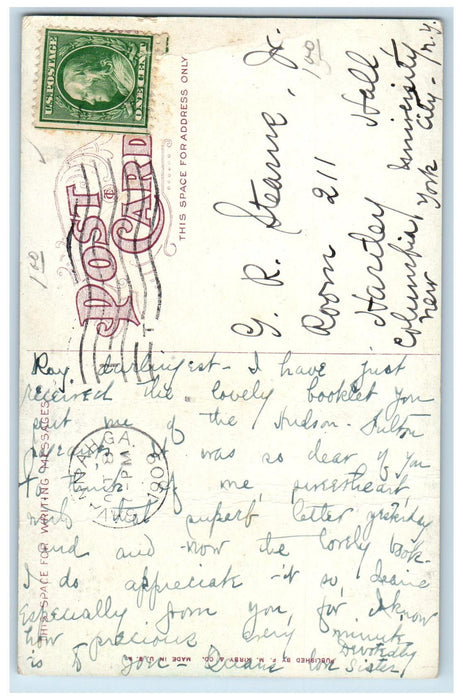 U.S. POSTAGE
ONE CENT
POST CARD
THIS SPACE FOR ADDRESS ONLY
1.00
G. R. Stearns, Jr.
Room 211
Hartley Hall
Columbia University
New York City. N.Y.
1.00
THIS SPACE FOR WRITING MESSAGES
SAVANNAH, GA.
PM
1909
Ray, darlingest - I have just
received the lovely booklet you
sent me of the Hudson-Fulton
It was so dear of you
to think of me, sweetheart,
with that superb letter yesterday
and and now the lovely book.
I do appreciate it so, dearie
especially from you, for I know
how precious every minute
is to you - Dearie
Devotedly
Sister
PUBLISHED BY F. M. KIRBY & CO. MADE IN U.S.A.